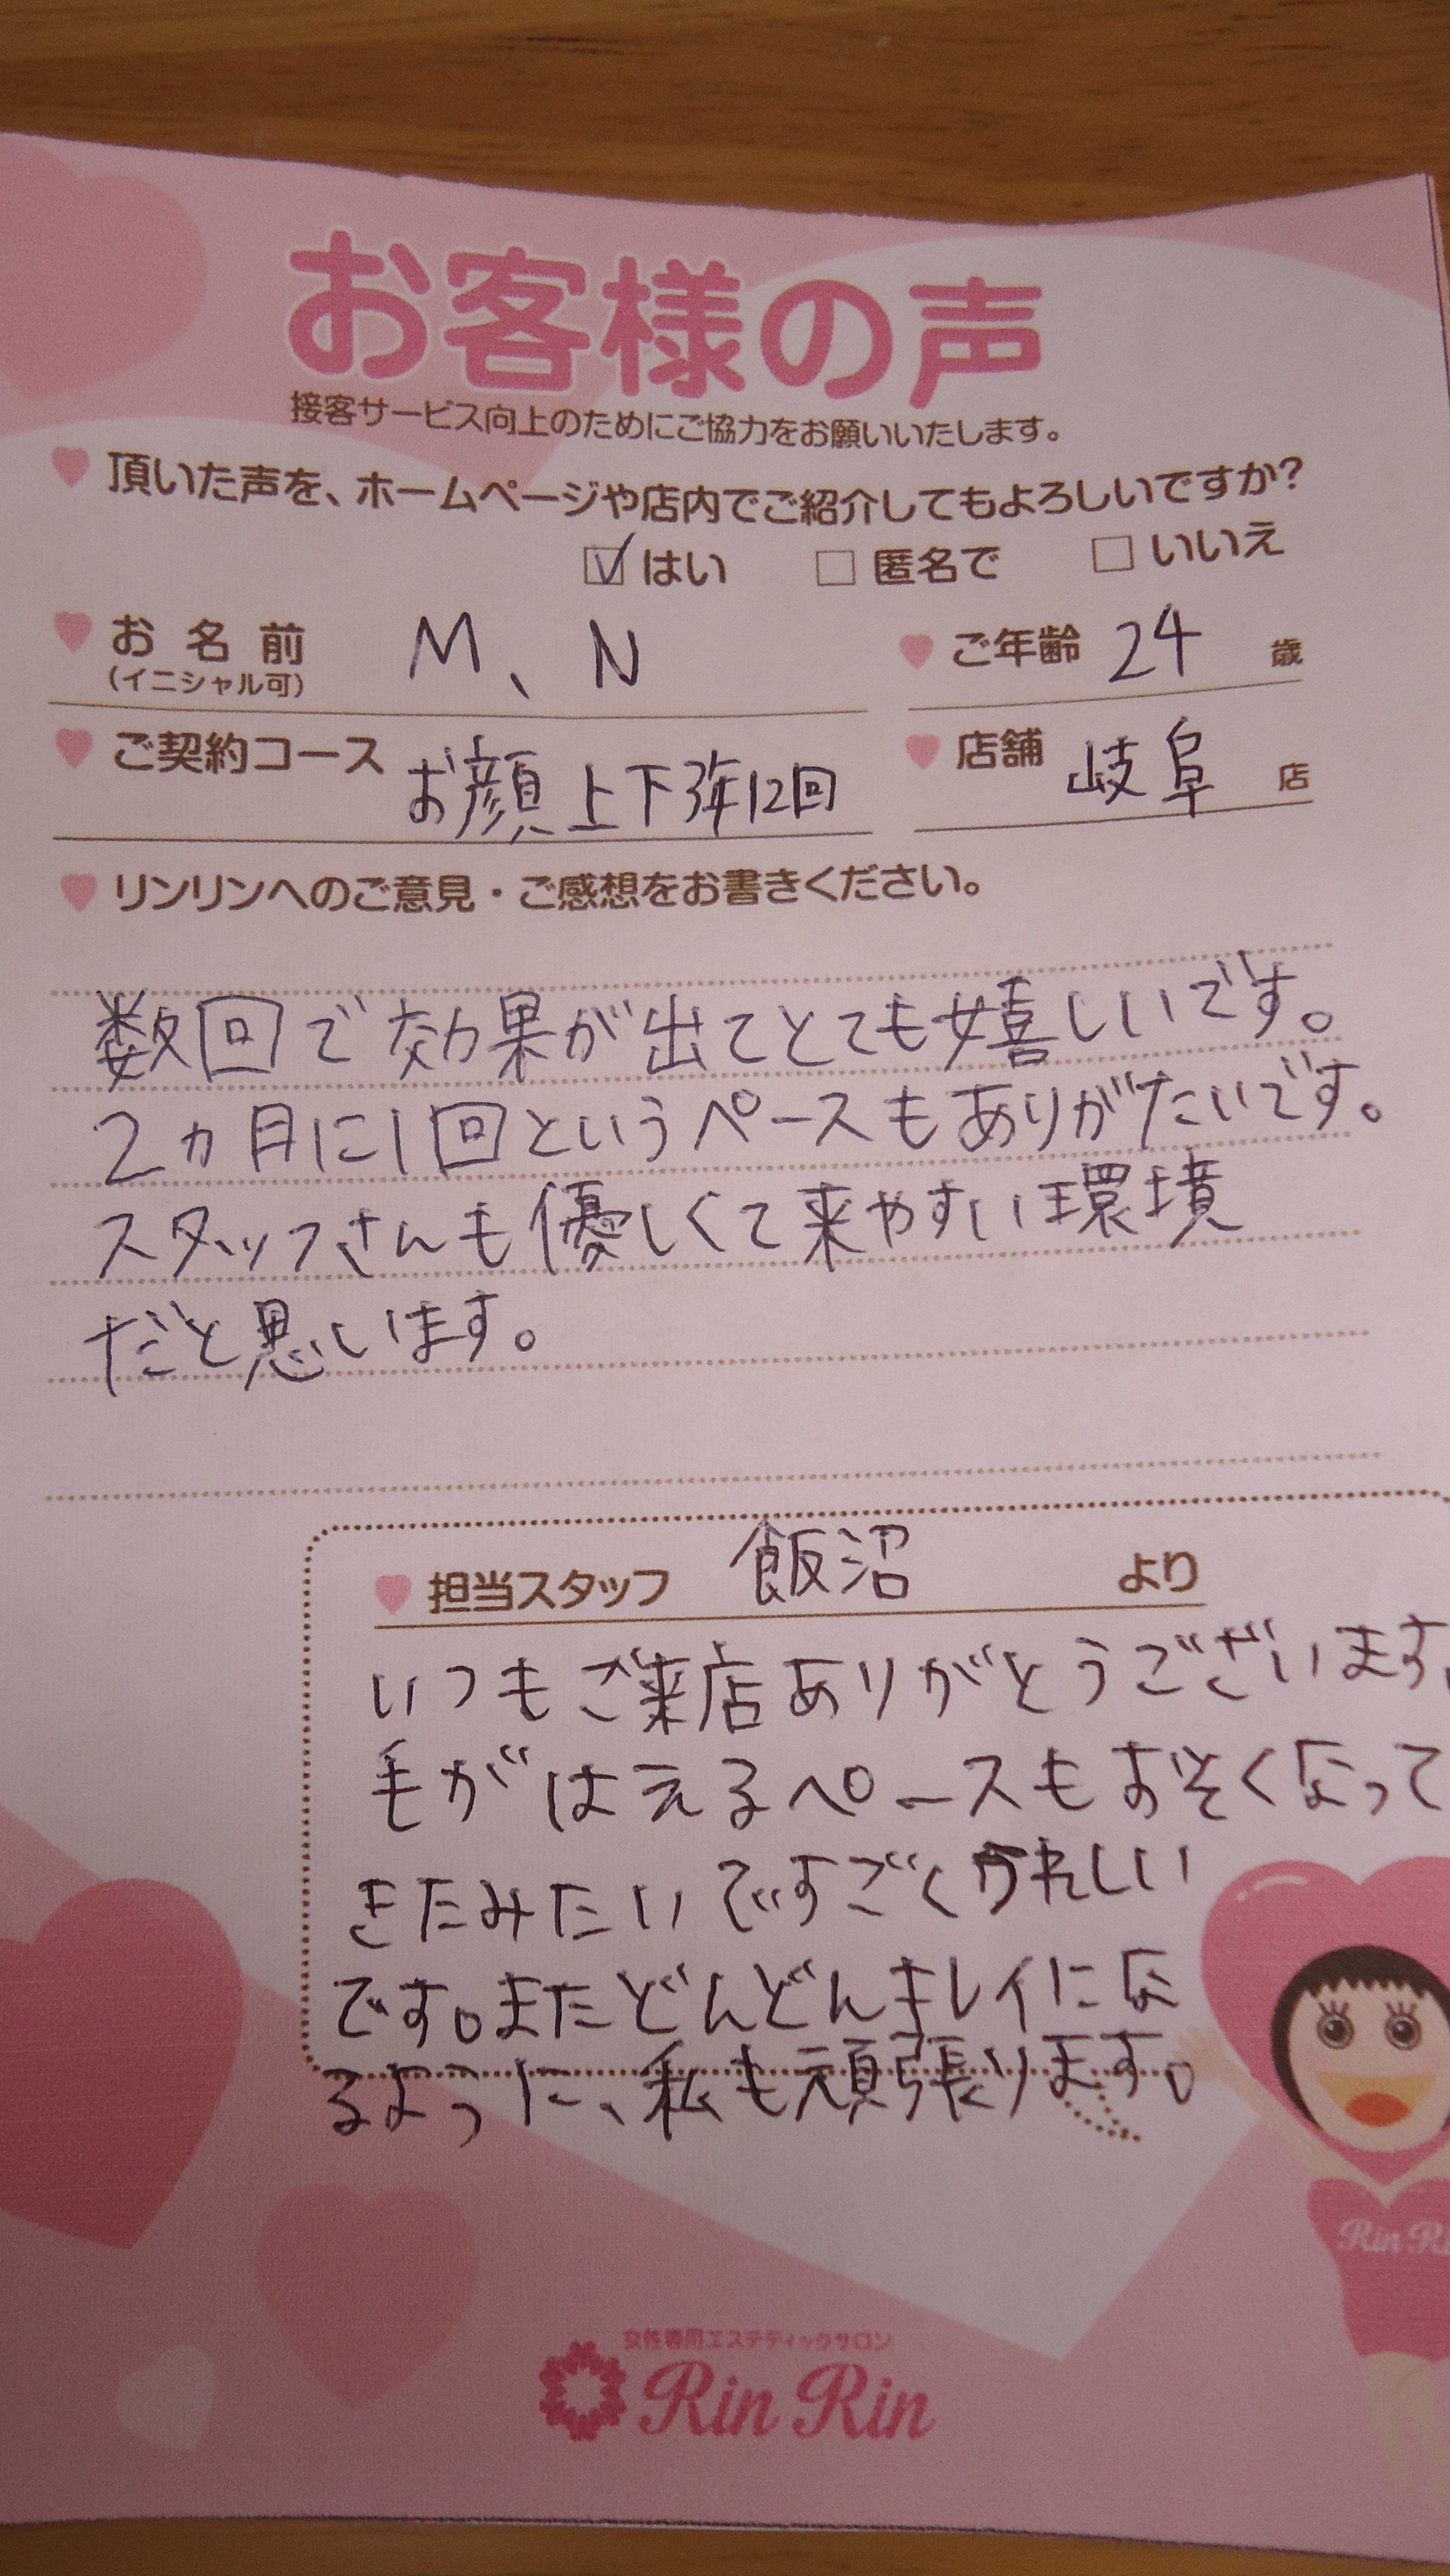 お客様の声
接客サービス向上のためにご協力をお願いいたします。
頂いた声を、ホームページや店内でご紹介してもよろしいですか?
はい 匿名で いいえ
お名前 M、N ご年齢 24 歳
(イニシャル可)
ご契約コース お顔上下3年12回 店舗 岐阜 店
リンリンへのご意見・ご感想をお書きください。
数回で効果が出てとても嬉しいです。
2ヵ月に1回というペースもありがたいです。
スタッフさんも優しくて来やすい環境
だと思います。
担当スタッフ 飯沼 より
いつもご来店ありがとうございます。
毛がはえるペースもおそくなって
きたみたいですごくうれしい
です。またどんどんキレイにな
るように、私も頑張ります。
Rin Ri
女性専用エステティックサロン
Rin Rin